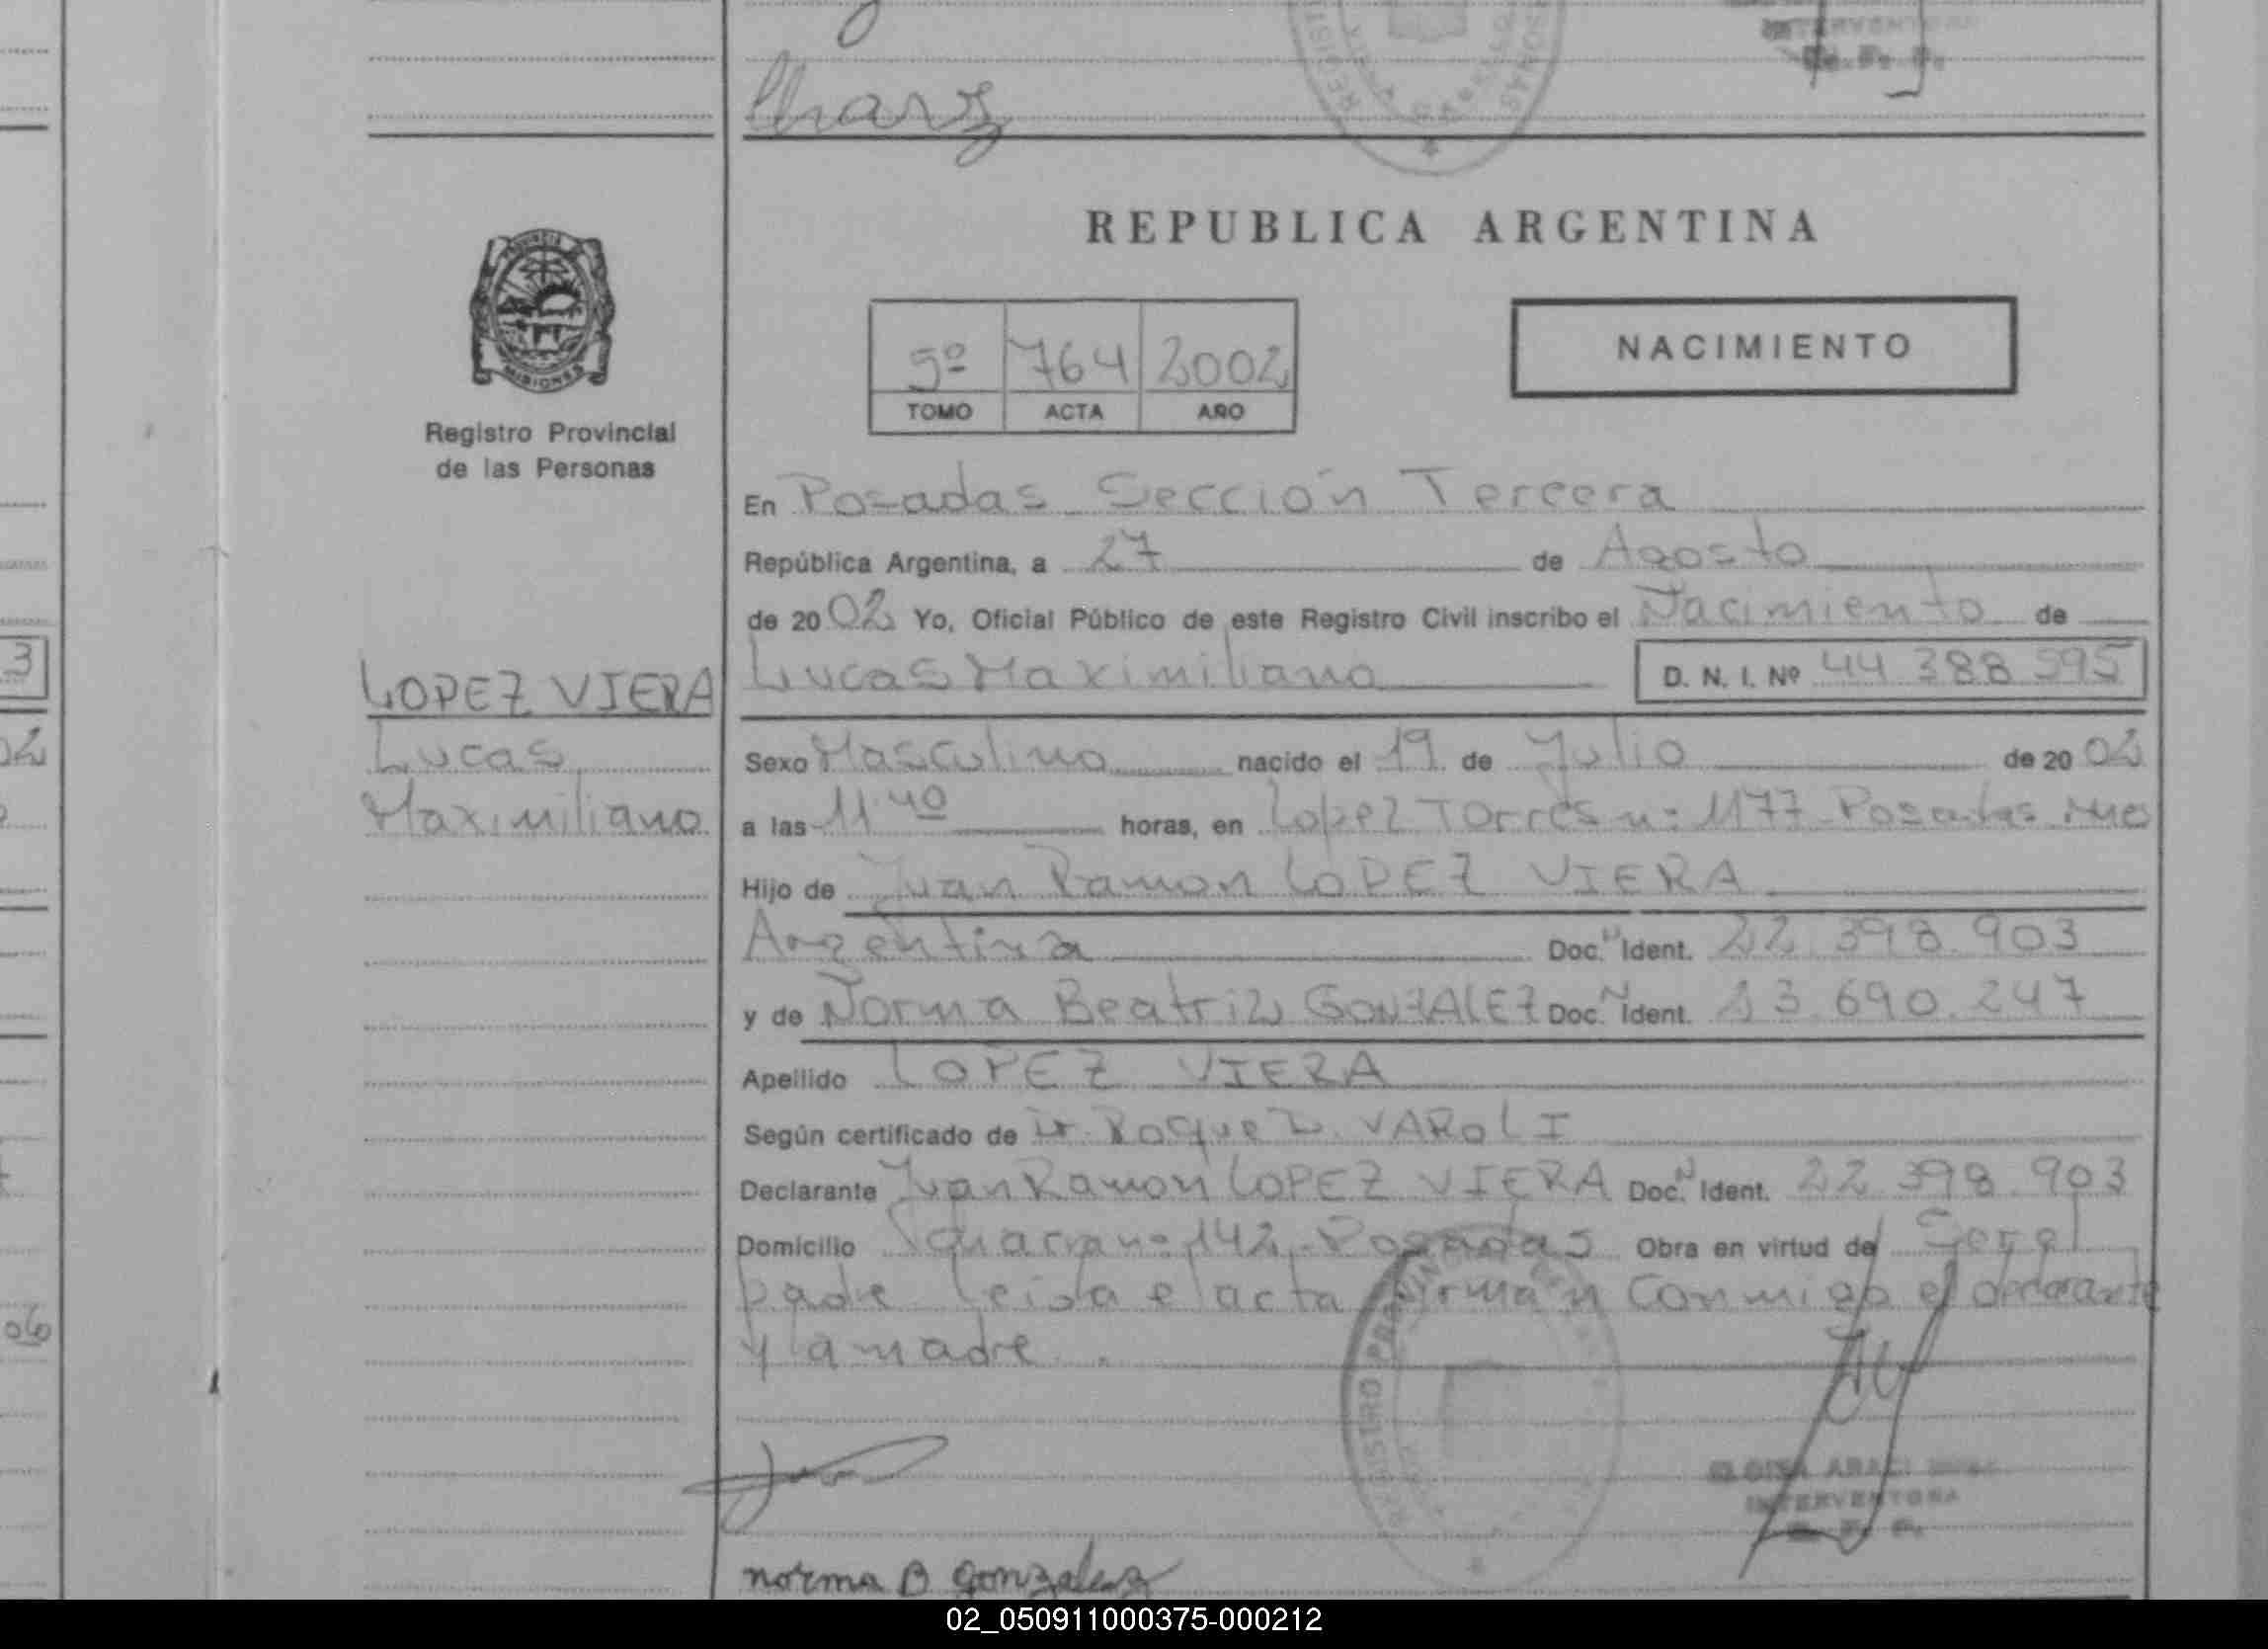 Chavz
REPUBLICA ARGENTINA
NACIMIENTO
5º 764 2002
TOMO ACTA AÑO
PROVINCIA
MISIONES
Registro Provincial
de las Personas
En Posadas Sección Tercera
República Argentina, a 27 de Agosto
de 2002 Yo, Oficial Público de este Registro Civil inscribo el Nacimiento de
LOPEZ VIERA
Lucas
Maximiliano
Lucas Maximiliano D. N. I. Nº 44 388 595
Sexo Masculino nacido el 19 de Julio de 2002
a las 11 40 horas, en Lopez Torres nº 1177 Posadas Mnes
Hijo de Juan Ramon LOPEZ VIERA
Argentina Doc. N Ident. 22.398.903
y de Norma Beatriz GONZALEZ Doc. N Ident. 23.690.247
Apellido LOPEZ VIERA
Según certificado de Dr. Roque L. VAROLI
Declarante Juan Ramon LOPEZ VIERA Doc. N Ident. 22.398.903
Domicilio nº 142 Posadas Obra en virtud de Ser el
padre leida el acta firman conmigo el declarante
y la madre.
REGISTRO PROVINCIAL
INTERVENTORA
norma B gonzalez
02_050911000375-000212